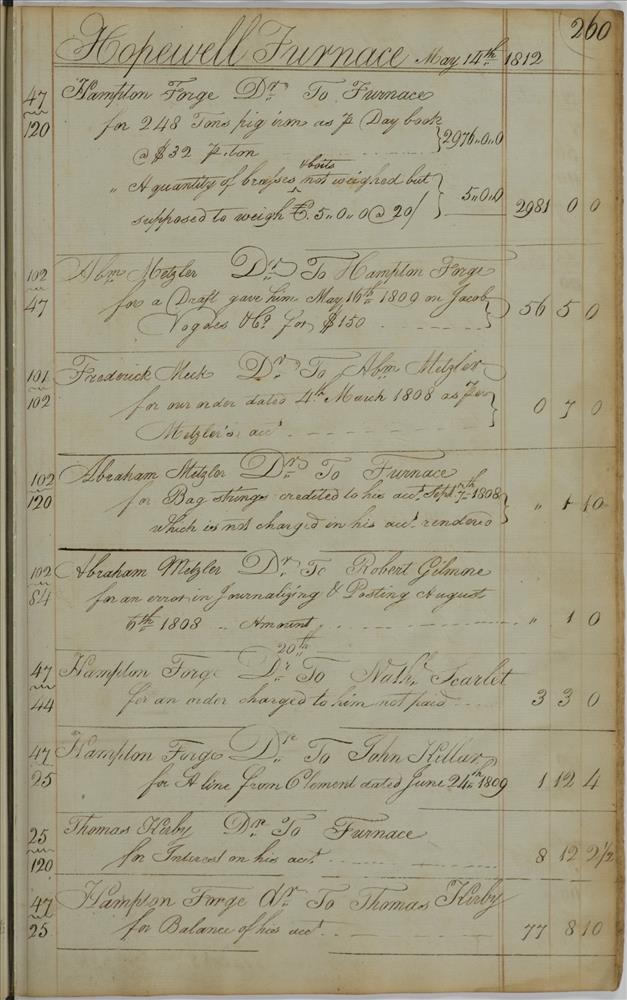 260
Hopewell Furnace May 14th 1812
47 Hampton Forge Dr. To Furnace
120 for 248 Tons pig iron as P Day book
@ $32 P. ton 2976,,0,,0
" A quantity of brasses & boits not weighed but
supposed to weigh C. 5,,0,,0 @ 20/ 5,,0,,0 2981 0 0
102 Abm. Metzler Dr. To Hampton Forge
47 for a Draft gave him May 16th 1809 on Jacob
Vogdes & Co. for $150 56 5 0
101 Frederick Meck Dr. To Abm. Metzler
102 for our order dated 4th March 1808 as Per
Metzler's acct. 0 7 0
102 Abraham Metzler Dr. To Furnace
120 for Bag strings credited to his acct. Sept. 7th 1808
which is not charged in his acct. rendered " 1 10
102 Abraham Metzler Dr. To Robert Gilmore
84 for an error in Journalizing & Posting August
6th 1808 .. Amount " 1 0
20th
47 Hampton Forge Dr. To Nathl. Scarlet
44 for an order charged to him not paid 3 3 0
47 Hampton Forge Dr. To John Kellar
25 for A line from Clement dated June 24th 1809 1 12 4
25 Thomas Kirby Dr. To Furnace
120 for Interest on his acct. 8 12 2 1/2
47 Hampton Forge Dr. To Thomas Kirby
25 for Balance of his acct. 77 8 10